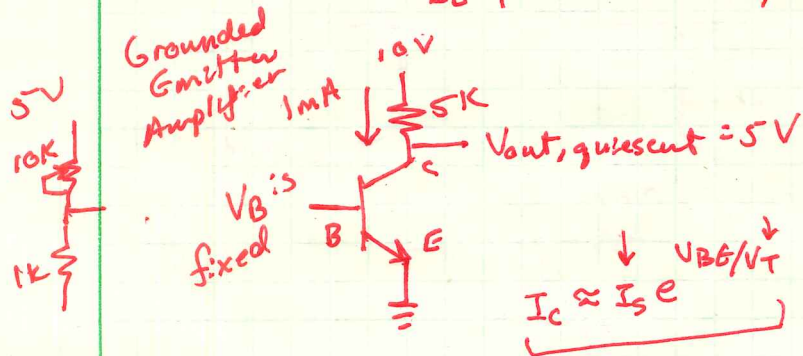 Grounded
Emitter
Amplifier
5V
10K
1K
10V
1mA
5K
C
Vout, quiescent = 5V
VB is
fixed
B
E
Ic ≈ Is e VBE/VT